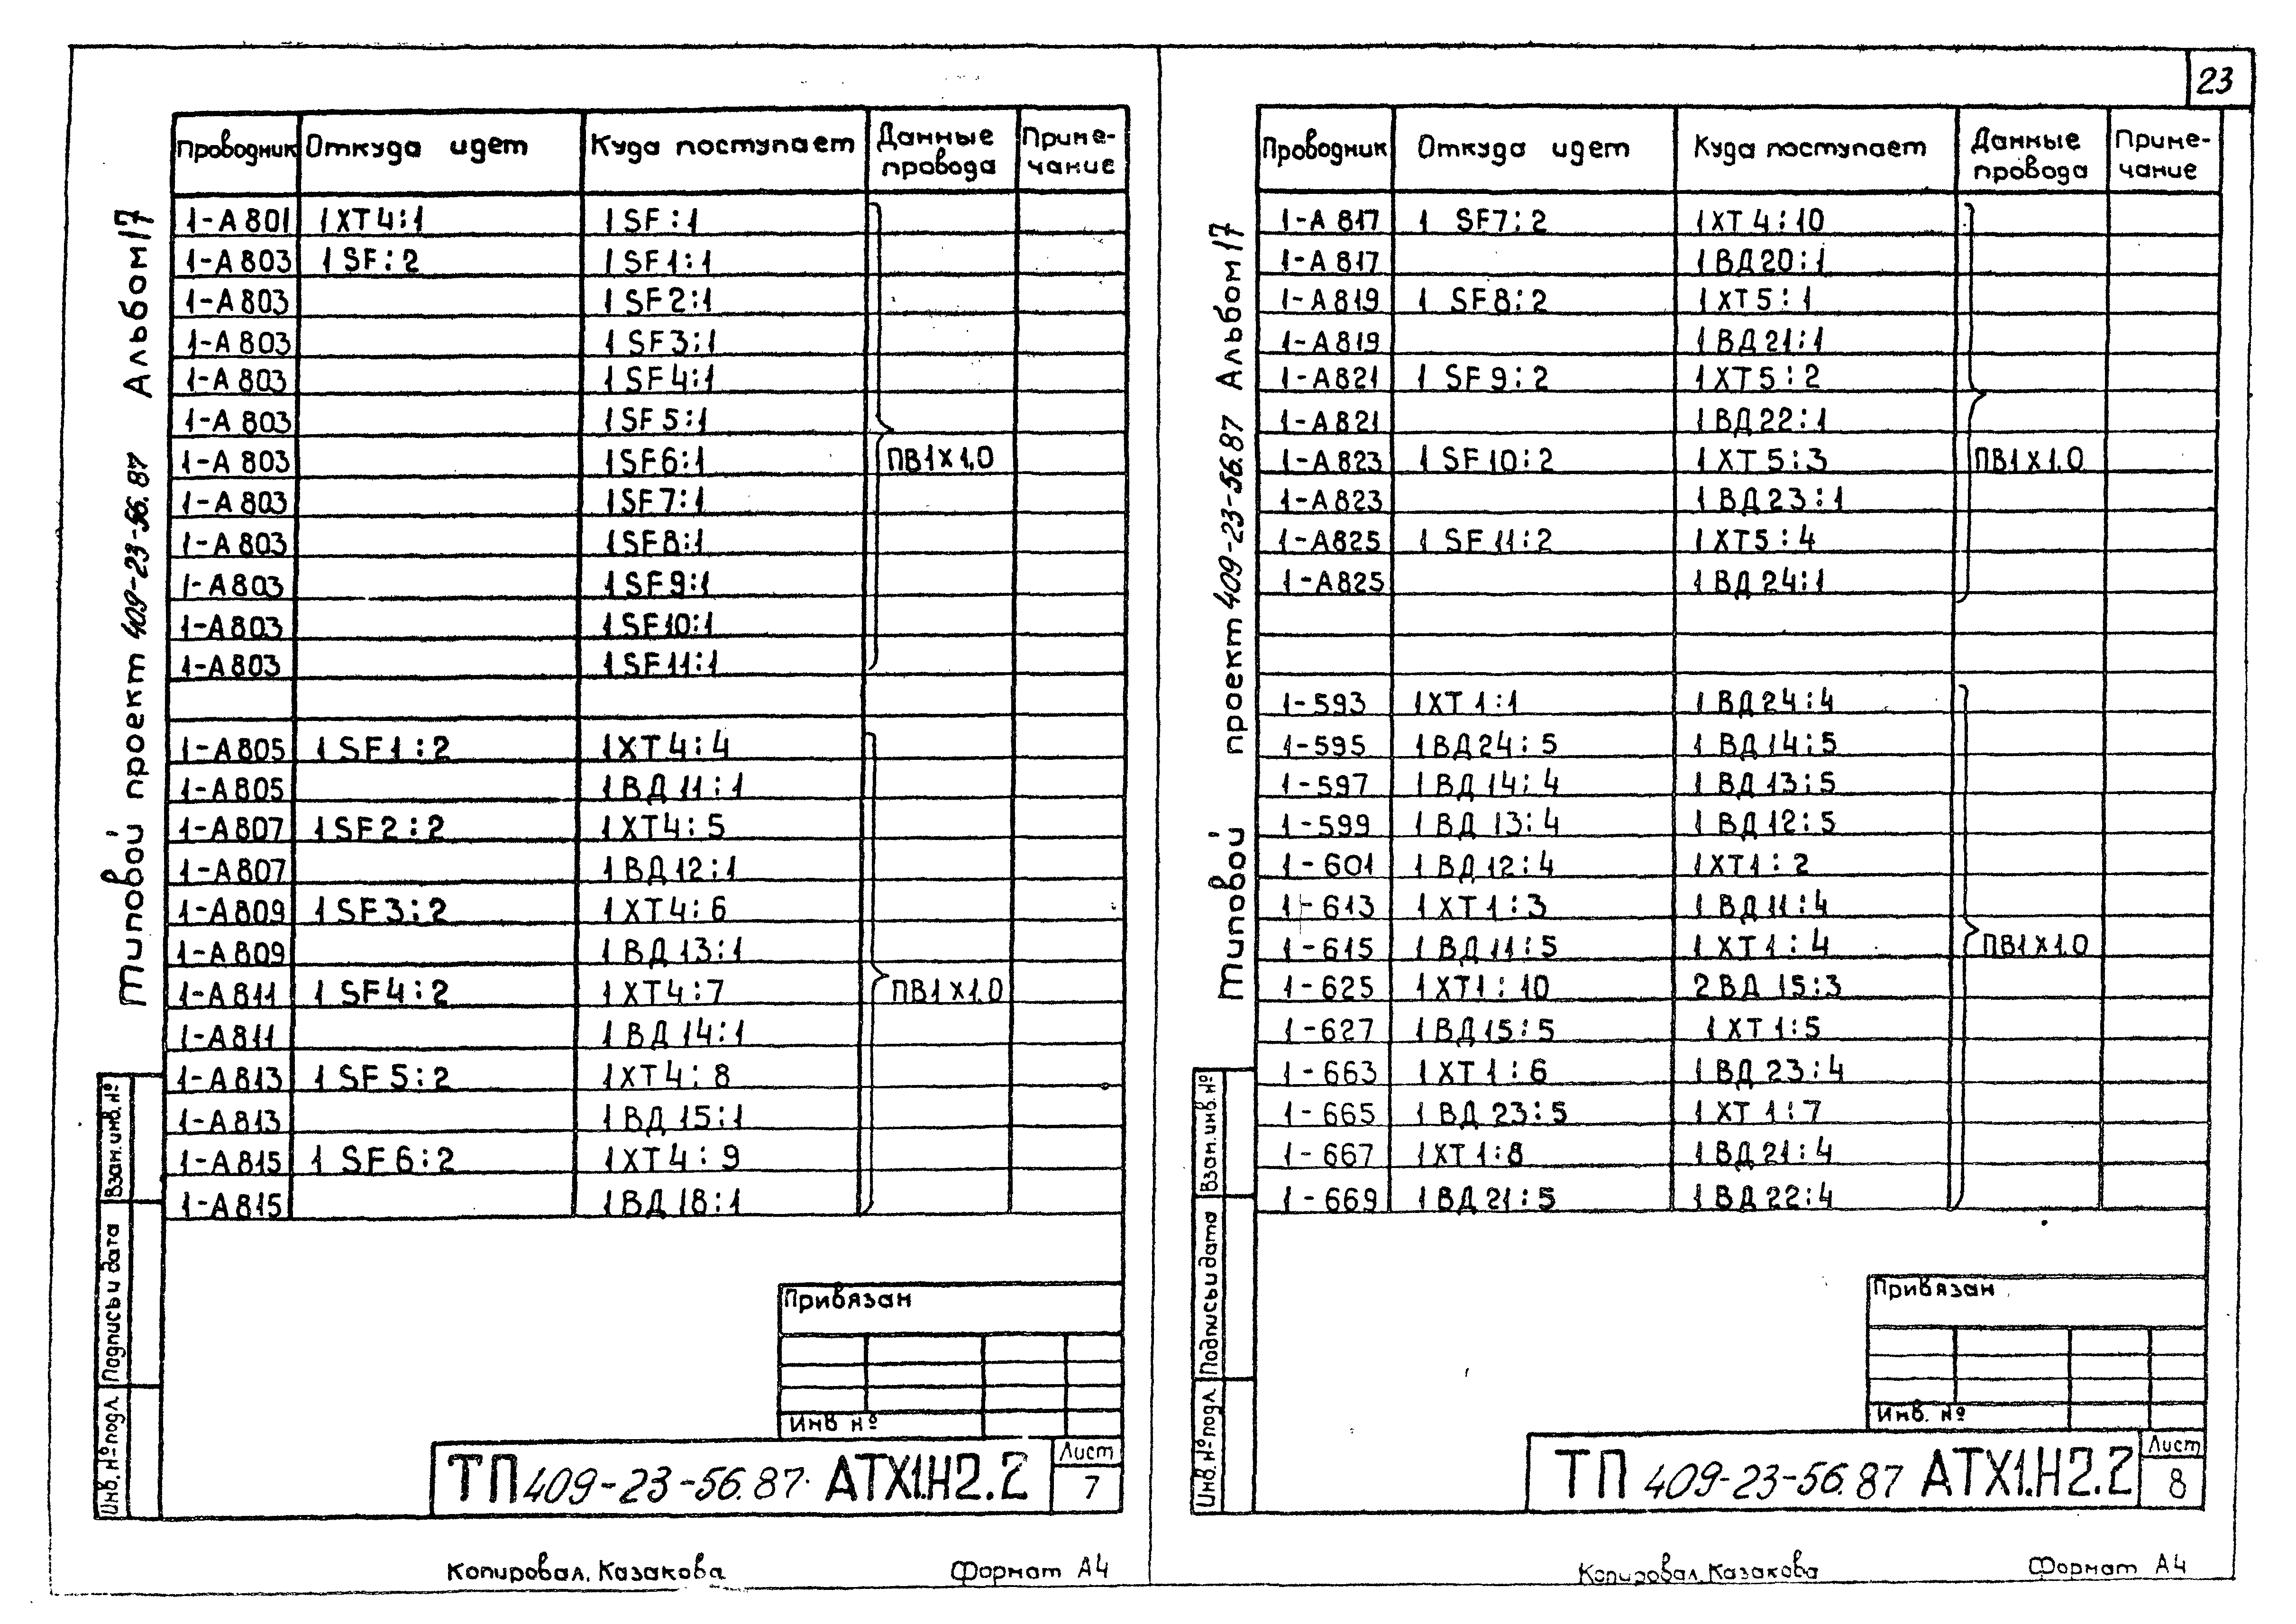 23
Типовой проект 409-23-56.87 Альбом 17
Проводник Откуда идет Куда поступает Данные провода Приме-чание
1-А801 1XT4:1 1SF:1
1-А803 1SF:2 1SF1:1
1-А803 1SF2:1
1-А803 1SF3:1
1-А803 1SF4:1
1-А803 1SF5:1
1-А803 1SF6:1 ПВ1Х1,0
1-А803 1SF7:1
1-А803 1SF8:1
1-А803 1SF9:1
1-А803 1SF10:1
1-А803 1SF11:1
1-А805 1SF1:2 1XT4:4
1-А805 1ВД11:1
1-А807 1SF2:2 1XT4:5
1-А807 1ВД12:1
1-А809 1SF3:2 1XT4:6
1-А809 1ВД13:1
1-А811 1SF4:2 1XT4:7 ПВ1Х1,0
1-А811 1ВД14:1
1-А813 1SF5:2 1XT4:8
1-А813 1ВД15:1
1-А815 1SF6:2 1XT4:9
1-А815 1ВД18:1
Взам.инв.№
Подпись и дата
Инв.№ подл.
Привязан
Инв №
ТП 409-23-56.87 АТХ1.Н2.2
Лист
7
Копировал. Казакова Формат А4
Типовой проект 409-23-56.87 Альбом 17
Проводник Откуда идет Куда поступает Данные провода Приме-чание
1-А817 1 SF7:2 1XT4:10
1-А817 1ВД20:1
1-А819 1 SF8:2 1XT5:1
1-А819 1ВД21:1
1-А821 1 SF9:2 1XT5:2
1-А821 1ВД22:1
1-А823 1 SF10:2 1XT5:3 ПВ1Х1.0
1-А823 1ВД23:1
1-А825 1 SF11:2 1XT5:4
1-А825 1ВД24:1
1-593 1XT1:1 1ВД24:4
1-595 1ВД24:5 1ВД14:5
1-597 1ВД14:4 1ВД13:5
1-599 1ВД13:4 1ВД12:5
1-601 1ВД12:4 1XT1:2
1-613 1XT1:3 1ВД11:4
1-615 1ВД11:5 1XT1:4 ПВ1Х1.0
1-625 1XT1:10 2ВД15:3
1-627 1ВД15:5 1XT1:5
1-663 1XT1:6 1ВД23:4
1-665 1ВД23:5 1XT1:7
1-667 1XT1:8 1ВД21:4
1-669 1ВД21:5 1ВД22:4
Взам.инв.№
Подпись и дата
Инв.№ подл.
Привязан
Инв. №
ТП 409-23-56.87 АТХ1.Н2.2
Лист
8
Копировал. Казакова Формат А4